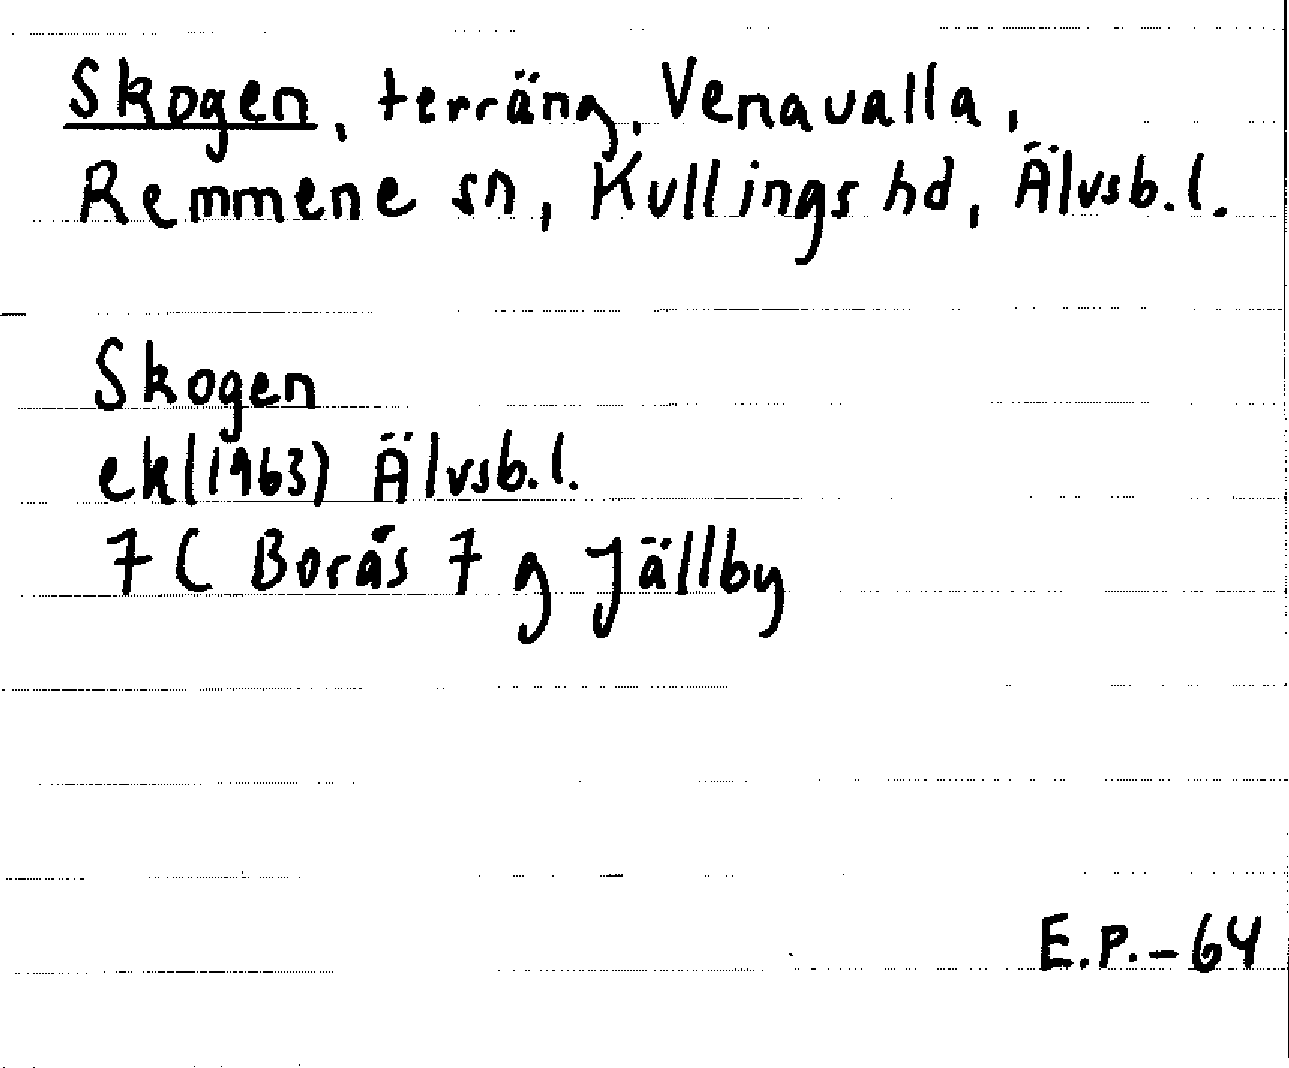 Skogen, terräng, Venavalla,
Remmene sn, Kullings hd, Älvsb.l.
Skogen
ek(1963) Älvsb.l.
7C Borås 7 g Jällby
E.P.-64